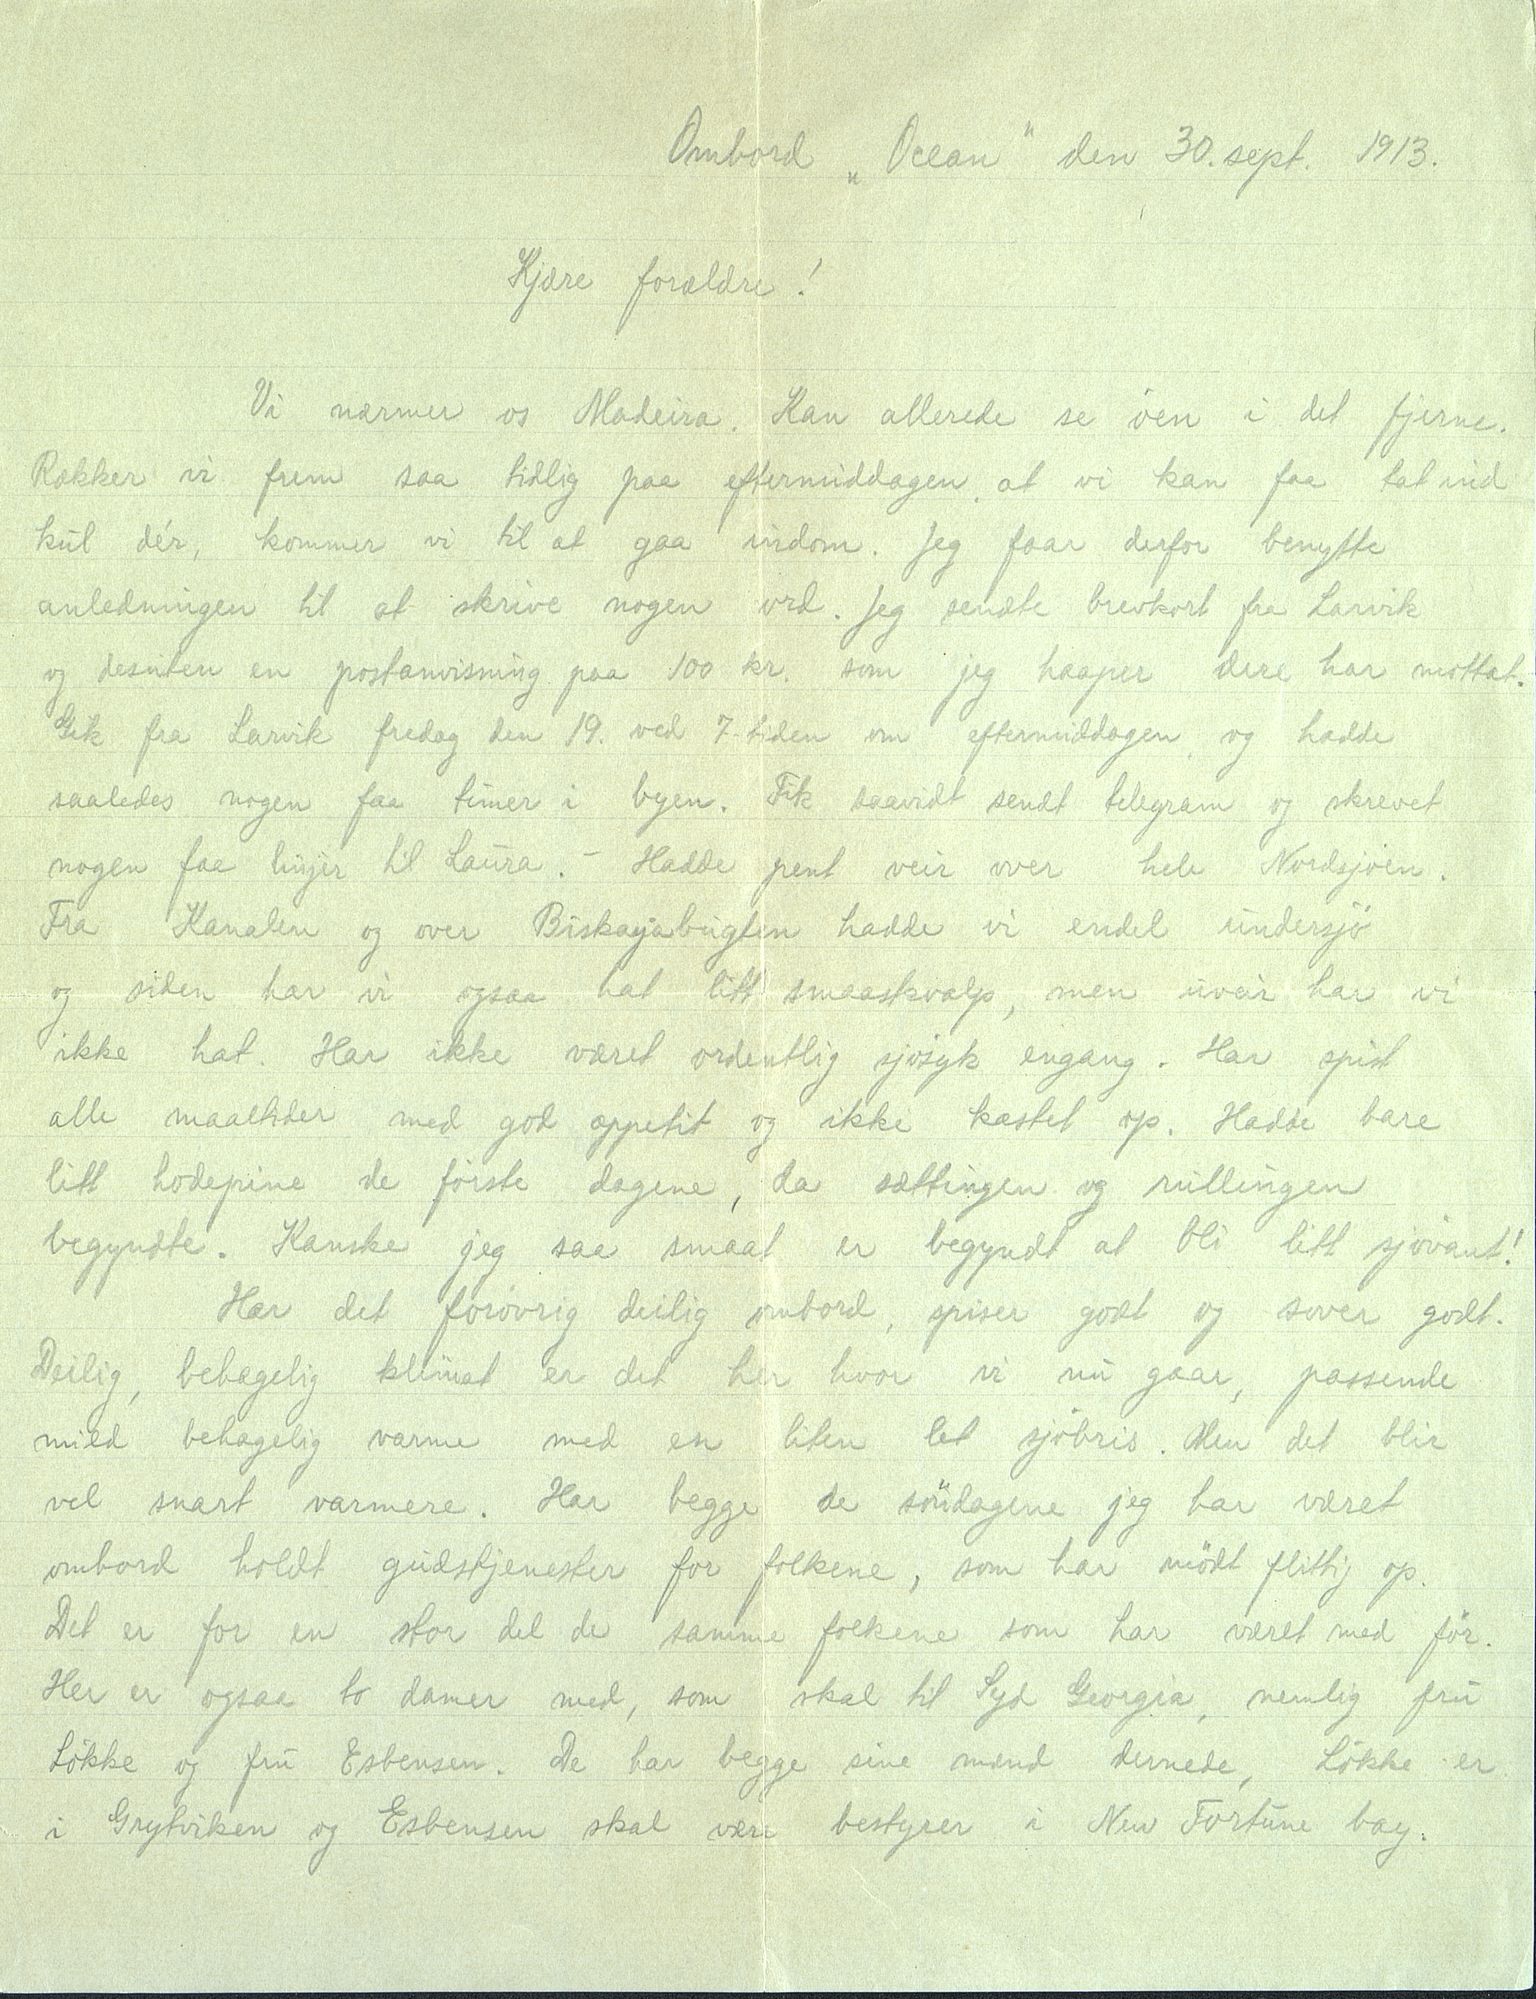 Ombord „Ocean" den 30. sept. 1913.
Kjære forældre!
Vi nærmer os Madeira. Kan allerede se öen i det fjerne.
Rækker vi frem saa tidlig paa eftermiddagen, at vi kan faa tat ind
kul dér, kommer vi til at gaa indom. Jeg faar derfor benytte
anledningen til at skrive nogen ord. Jeg sendte brevkort fra Larvik
og desuten en postanvisning paa 100 kr. som jeg haaper dere har mottat.
Gik fra Larvik fredag den 19. ved 7-tiden om eftermiddagen, og hadde
saaledes nogen faa timer i byen. Fik saavidt sendt telegram og skrevet
nogen faa linjer til Laura. – Hadde pent veir over hele Nordsjöen.
Fra Kanalen og over Biskayabugten hadde vi endel undersjö
og siden har vi ogsaa hat litt smaaskvalp, men uveir har vi
ikke hat. Har ikke været ordentlig sjösyk engang. Har spist
alle maaltider med god appetit og ikke kastet op. Hadde bare
litt hodepine de förste dagene, da sættingen og rullingen
begyndte. Kanske jeg saa smaat er begyndt at bli litt sjövant!
Har det forövrig deilig ombord, spiser godt og sover godt.
Deilig, behagelig klimat er det her hvor vi nu gaar, passende
mild behagelig varme med en liten let sjöbris. Men det blir
vel snart varmere. Har begge de söndagene jeg har været
ombord holdt gudstjenester for folkene, som har mödt flittig op.
Det er for en stor del de samme folkene som har været med för.
Her er ogsaa to damer med, som skal til Syd Georgia, nemlig fru
Lökke og fru Esbensen. De har begge sine mænd dernede, Lökke er
i Grytviken og Esbensen skal være bestyrer i New Fortune bay.